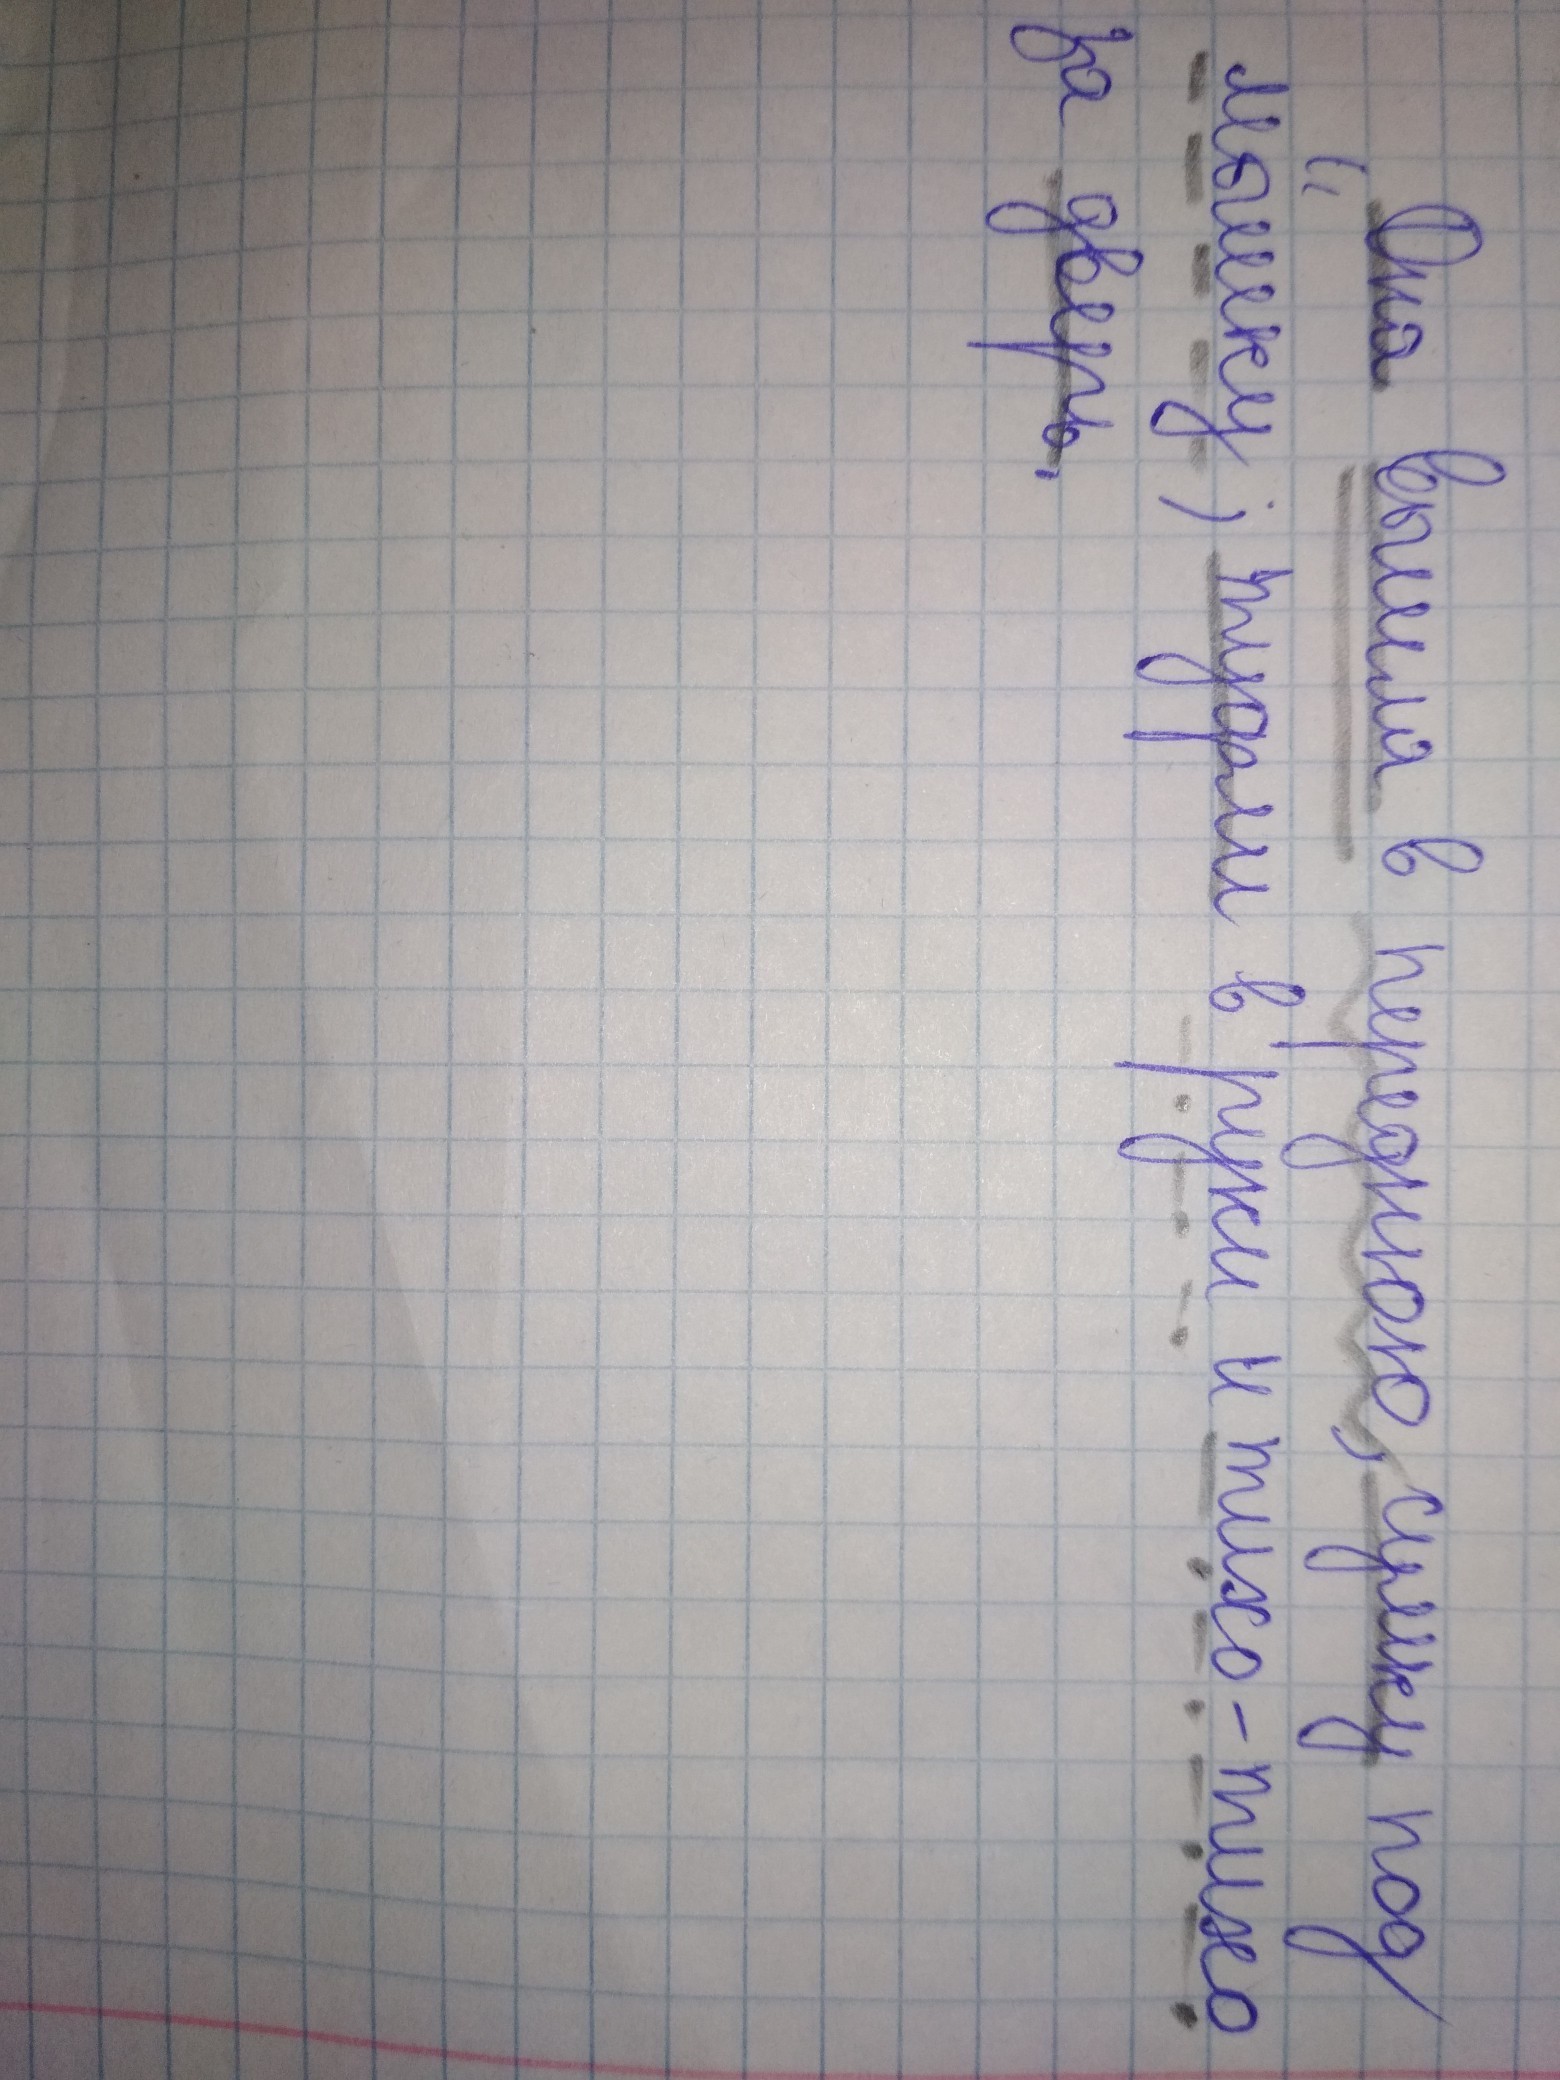 „Она вышла в переднюю, сумку под
мышку; туфли в руки и тихо-тихо
за дверь,